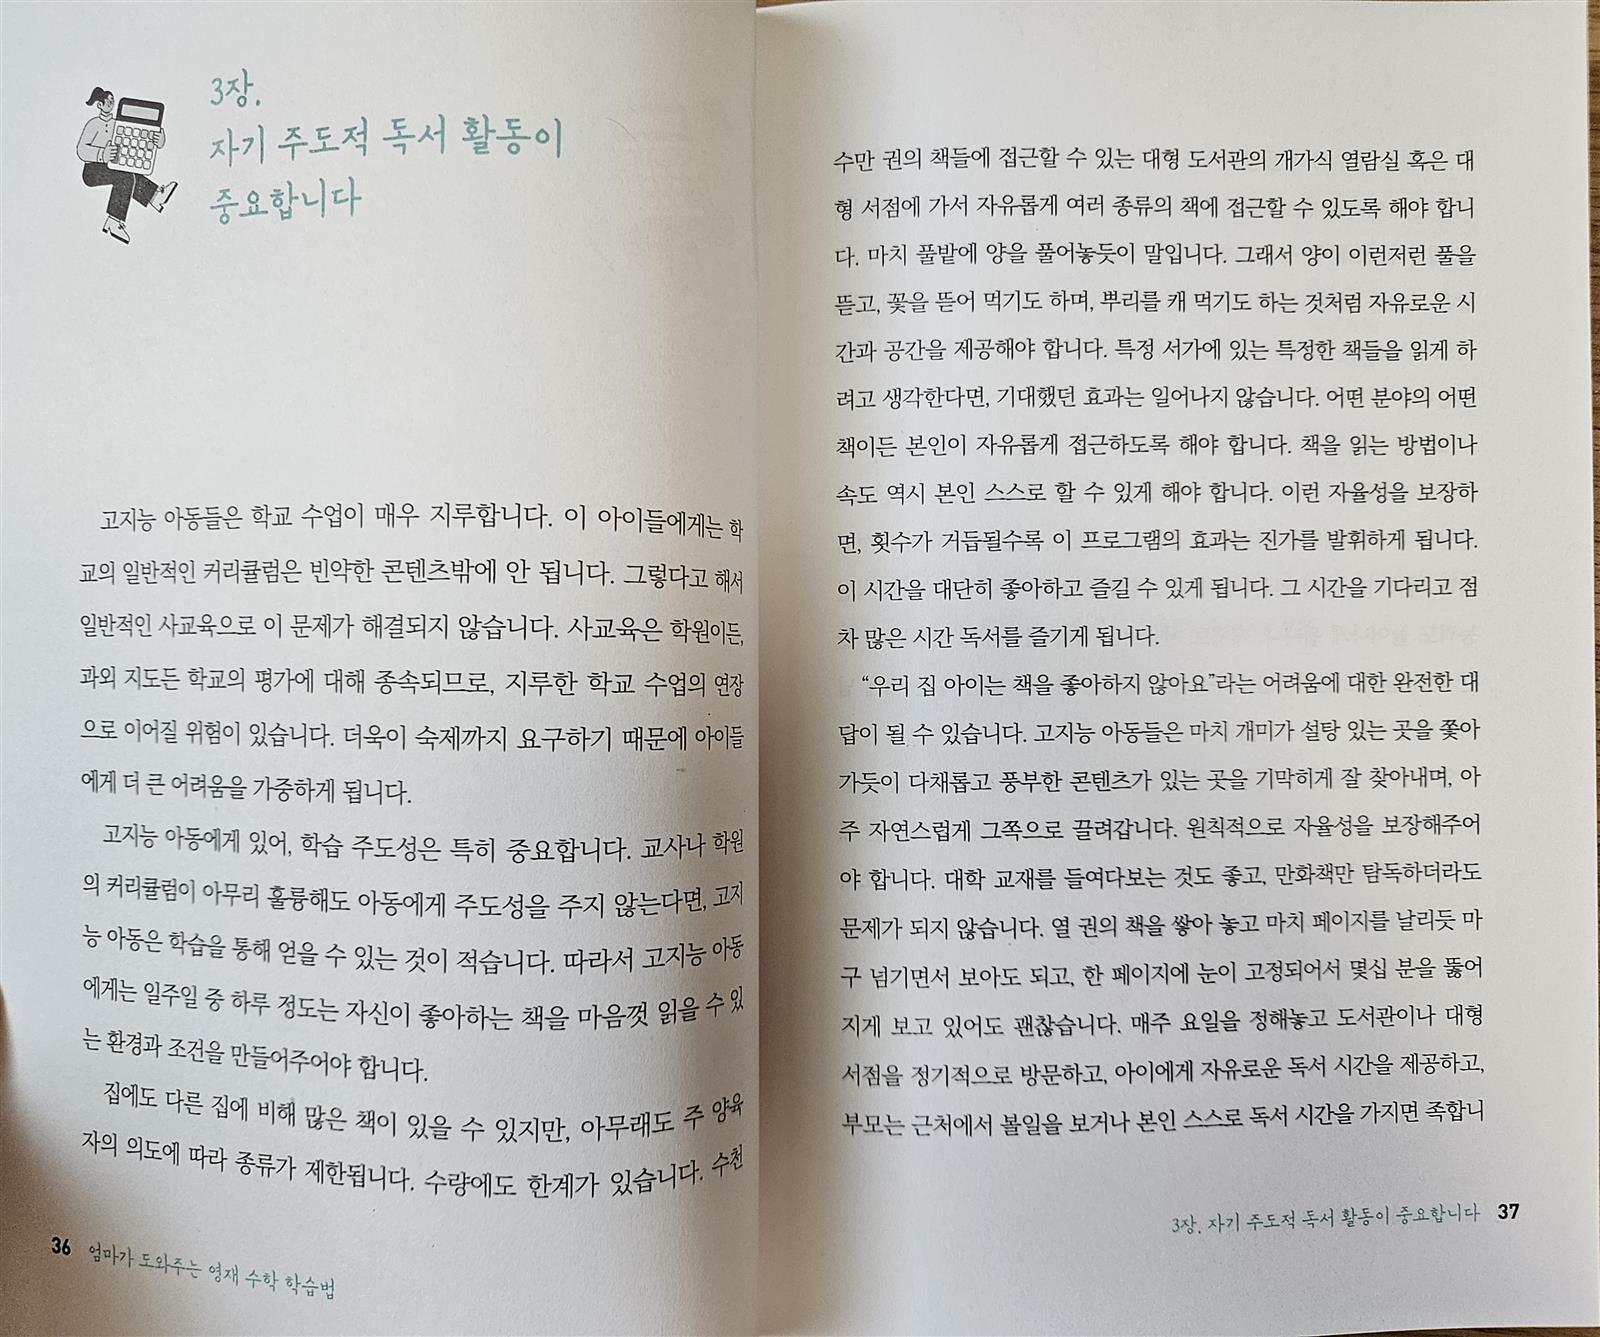 3장.
자기 주도적 독서 활동이
중요합니다
고지능 아동들은 학교 수업이 매우 지루합니다. 이 아이들에게는 학
교의 일반적인 커리큘럼은 빈약한 콘텐츠밖에 안 됩니다. 그렇다고 해서
일반적인 사교육으로 이 문제가 해결되지 않습니다. 사교육은 학원이든,
과외 지도든 학교의 평가에 대해 종속되므로, 지루한 학교 수업의 연장
으로 이어질 위험이 있습니다. 더욱이 숙제까지 요구하기 때문에 아이들
에게 더 큰 어려움을 가중하게 됩니다.
고지능 아동에게 있어, 학습 주도성은 특히 중요합니다. 교사나 학원
의 커리큘럼이 아무리 훌륭해도 아동에게 주도성을 주지 않는다면, 고지
능 아동은 학습을 통해 얻을 수 있는 것이 적습니다. 따라서 고지능 아동
에게는 일주일 중 하루 정도는 자신이 좋아하는 책을 마음껏 읽을 수 있
는 환경과 조건을 만들어주어야 합니다.
집에도 다른 집에 비해 많은 책이 있을 수 있지만, 아무래도 주 양육
자의 의도에 따라 종류가 제한됩니다. 수량에도 한계가 있습니다. 수천
36 엄마가 도와주는 영재 수학 학습법
수만 권의 책들에 접근할 수 있는 대형 도서관의 개가식 열람실 혹은 대
형 서점에 가서 자유롭게 여러 종류의 책에 접근할 수 있도록 해야 합니
다. 마치 풀밭에 양을 풀어놓듯이 말입니다. 그래서 양이 이런저런 풀을
뜯고, 꽃을 뜯어 먹기도 하며, 뿌리를 캐 먹기도 하는 것처럼 자유로운 시
간과 공간을 제공해야 합니다. 특정 서가에 있는 특정한 책들을 읽게 하
려고 생각한다면, 기대했던 효과는 일어나지 않습니다. 어떤 분야의 어떤
책이든 본인이 자유롭게 접근하도록 해야 합니다. 책을 읽는 방법이나
속도 역시 본인 스스로 할 수 있게 해야 합니다. 이런 자율성을 보장하
면, 횟수가 거듭될수록 이 프로그램의 효과는 진가를 발휘하게 됩니다.
이 시간을 대단히 좋아하고 즐길 수 있게 됩니다. 그 시간을 기다리고 점
차 많은 시간 독서를 즐기게 됩니다.
“우리 집 아이는 책을 좋아하지 않아요”라는 어려움에 대한 완전한 대
답이 될 수 있습니다. 고지능 아동들은 마치 개미가 설탕 있는 곳을 쫓아
가듯이 다채롭고 풍부한 콘텐츠가 있는 곳을 기막히게 잘 찾아내며, 아
주 자연스럽게 그쪽으로 끌려갑니다. 원칙적으로 자율성을 보장해주어
야 합니다. 대학 교재를 들여다보는 것도 좋고, 만화책만 탐독하더라도
문제가 되지 않습니다. 열 권의 책을 쌓아 놓고 마치 페이지를 날리듯 마
구 넘기면서 보아도 되고, 한 페이지에 눈이 고정되어서 몇십 분을 뚫어
지게 보고 있어도 괜찮습니다. 매주 요일을 정해놓고 도서관이나 대형
서점을 정기적으로 방문하고, 아이에게 자유로운 독서 시간을 제공하고,
부모는 근처에서 볼일을 보거나 본인 스스로 독서 시간을 가지면 족합니
3장. 자기 주도적 독서 활동이 중요합니다 37